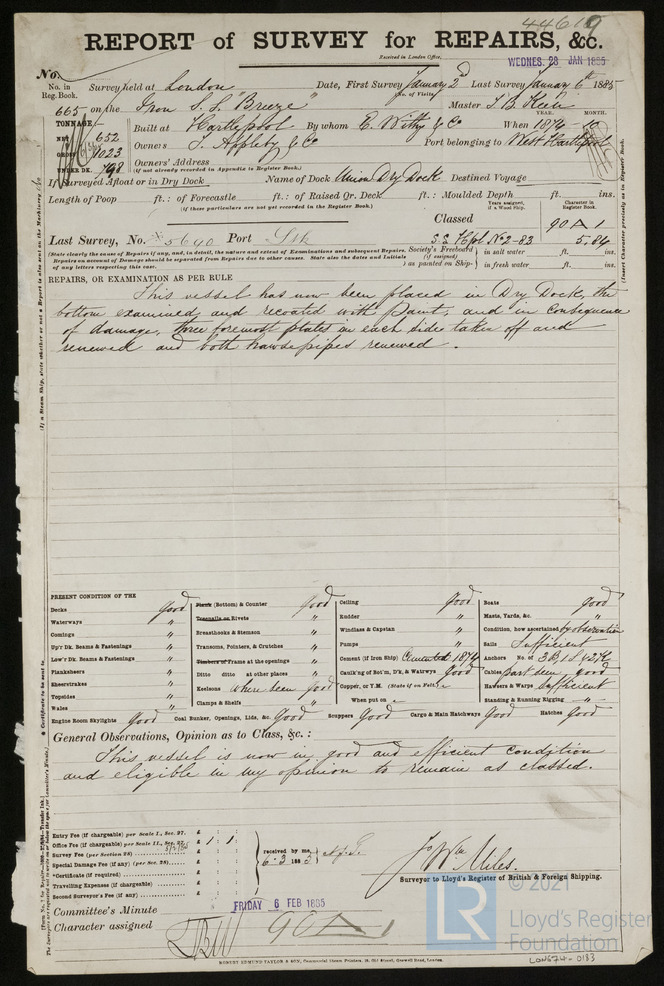 44619
REPORT of SURVEY for REPAIRS, &c.
Received in London Office,
WEDNES. 28 JAN 1885
No.
No. in Reg. Book.
Survey held at London Date, First Survey January 2d Last Survey January 6th 1885
(No. of Visits)
665 on the Iron S.S. "Breeze" Master
TONNAGE
NET 652
GROSS 1023
UNDER DK. 798
Built at Hartlepool By whom E. Withy & Co When 1874 10
YEAR. MONTH.
Owners Appleby & Co Port belonging to West Hartlepool
Owners' Address
(if not already recorded in Appendix to Register Book.)
If Surveyed Afloat or in Dry Dock Name of Dock Union Dry Dock Destined Voyage
Length of Poop ft.: of Forecastle ft.: of Raised Qr. Deck ft.: Moulded Depth ft. ins.
(if these particulars are not yet recorded in the Register Book.)
Years assigned, if a Wood Ship.
Character in Register Book.
Classed 90 A 1
Last Survey, No. 5690 Port S.S. Hpl No 2-83 5.84
(State clearly the cause of Repairs if any, and, in detail, the nature and extent of Examinations and subsequent Repairs.
Repairs on account of Damage should be separated from Repairs due to other causes. State also the dates and Initials
of any letters respecting this case.
Society's Freeboard (if assigned) as painted on Ship-
in salt water ft. ins.
in fresh water ft. ins.
REPAIRS, OR EXAMINATION AS PER RULE
This vessel has now been placed in Dry Dock, the
bottom examined and recoated with Paint, and in consequence
of damage, three foremost plates on each side taken off and
renewed and both hawse pipes renewed.
PRESENT CONDITION OF THE
Decks good
Waterways "
Comings "
Up'r Dk. Beams & Fastenings "
Low'r Dk. Beams & Fastenings "
Planksheers "
Sheerstrakes "
Topsides "
Wales "
Engine Room Skylights Good
Plank (Bottom) & Counter good
Treenails or Rivets "
Breasthooks & Stemson "
Transoms, Pointers, & Crutches "
Timbers or Frame at the openings "
Ditto ditto at other places "
Keelsons where seen good
Clamps & Shelfs "
Coal Bunker, Openings, Lids, &c. Good
Ceiling Good
Rudder "
Windlass & Capstan "
Pumps "
Cement (if Iron Ship) Cemented 1874
Caulk'ng of Bot'm, D'k, & Waterw'ys Good
Copper, or Y.M. (State if on Felt) "
When put on "
Scuppers Good
Cargo & Main Hatchways Good
Boats good
Masts, Yards, &c. "
Condition, how ascertained by observation
Sails Sufficient
Anchors No. of 3B, 1S & 2K
Cables part seen good
Hawsers & Warps Sufficient
Standing & Running Rigging "
Hatches Good
General Observations, Opinion as to Class, &c. :
This vessel is now in good and efficient condition
and eligible in my opinion to remain as classed.
Entry Fee (if chargeable) per Scale I., Sec. 27. £ : :
Office Fee (if chargeable) per Scale II., Sec. 27. £ 1 : 1 :
Survey Fee (per Section 28) £ : :
Special Damage Fee (if any) (per Sec. 28) £ : :
*Certificate (if required) £ : :
Travelling Expenses (if chargeable) £ : :
Second Surveyor's Fee (if any) £ : :
received by me,
6.3 188
Jo Wm Miles.
Surveyor to Lloyd's Register of British & Foreign Shipping.
Committee's Minute FRIDAY 6 FEB 1885
Character assigned 90 A 1
ROBERT EDMUND TAYLOR & SON,
LR
© 2021
Lloyd's Register
Foundation
LON674-0183